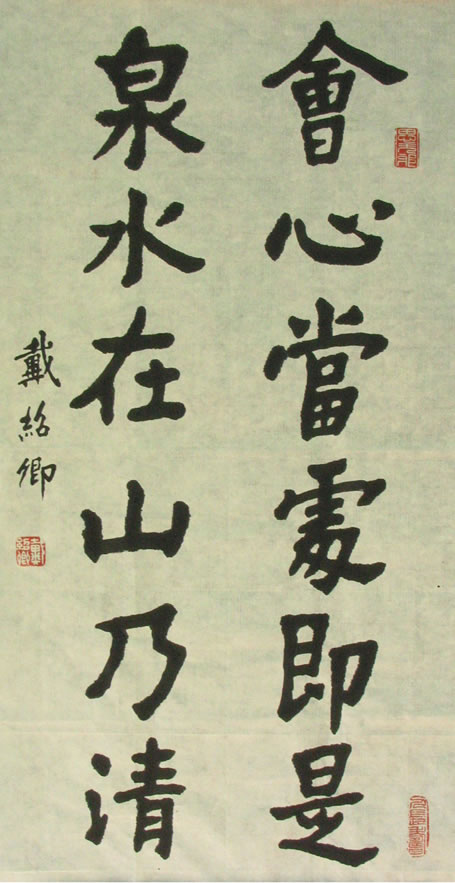 會心當處即是
泉水在山乃清
戴紹卿